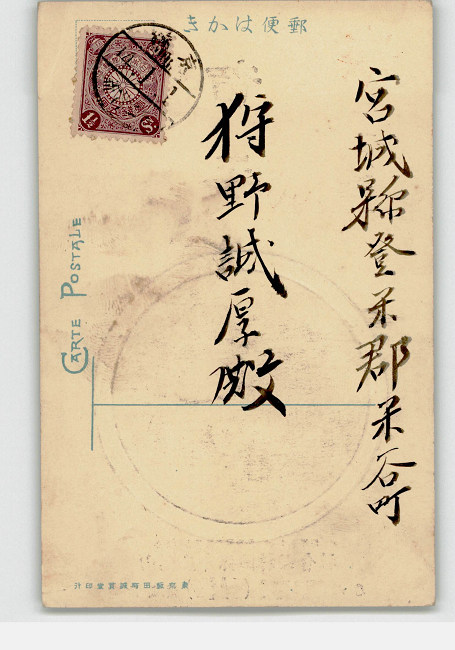 郵便はかき
宮城縣登米郡米谷町
狩野誠厚殿
CARTE POSTALE
1½ Sn
京